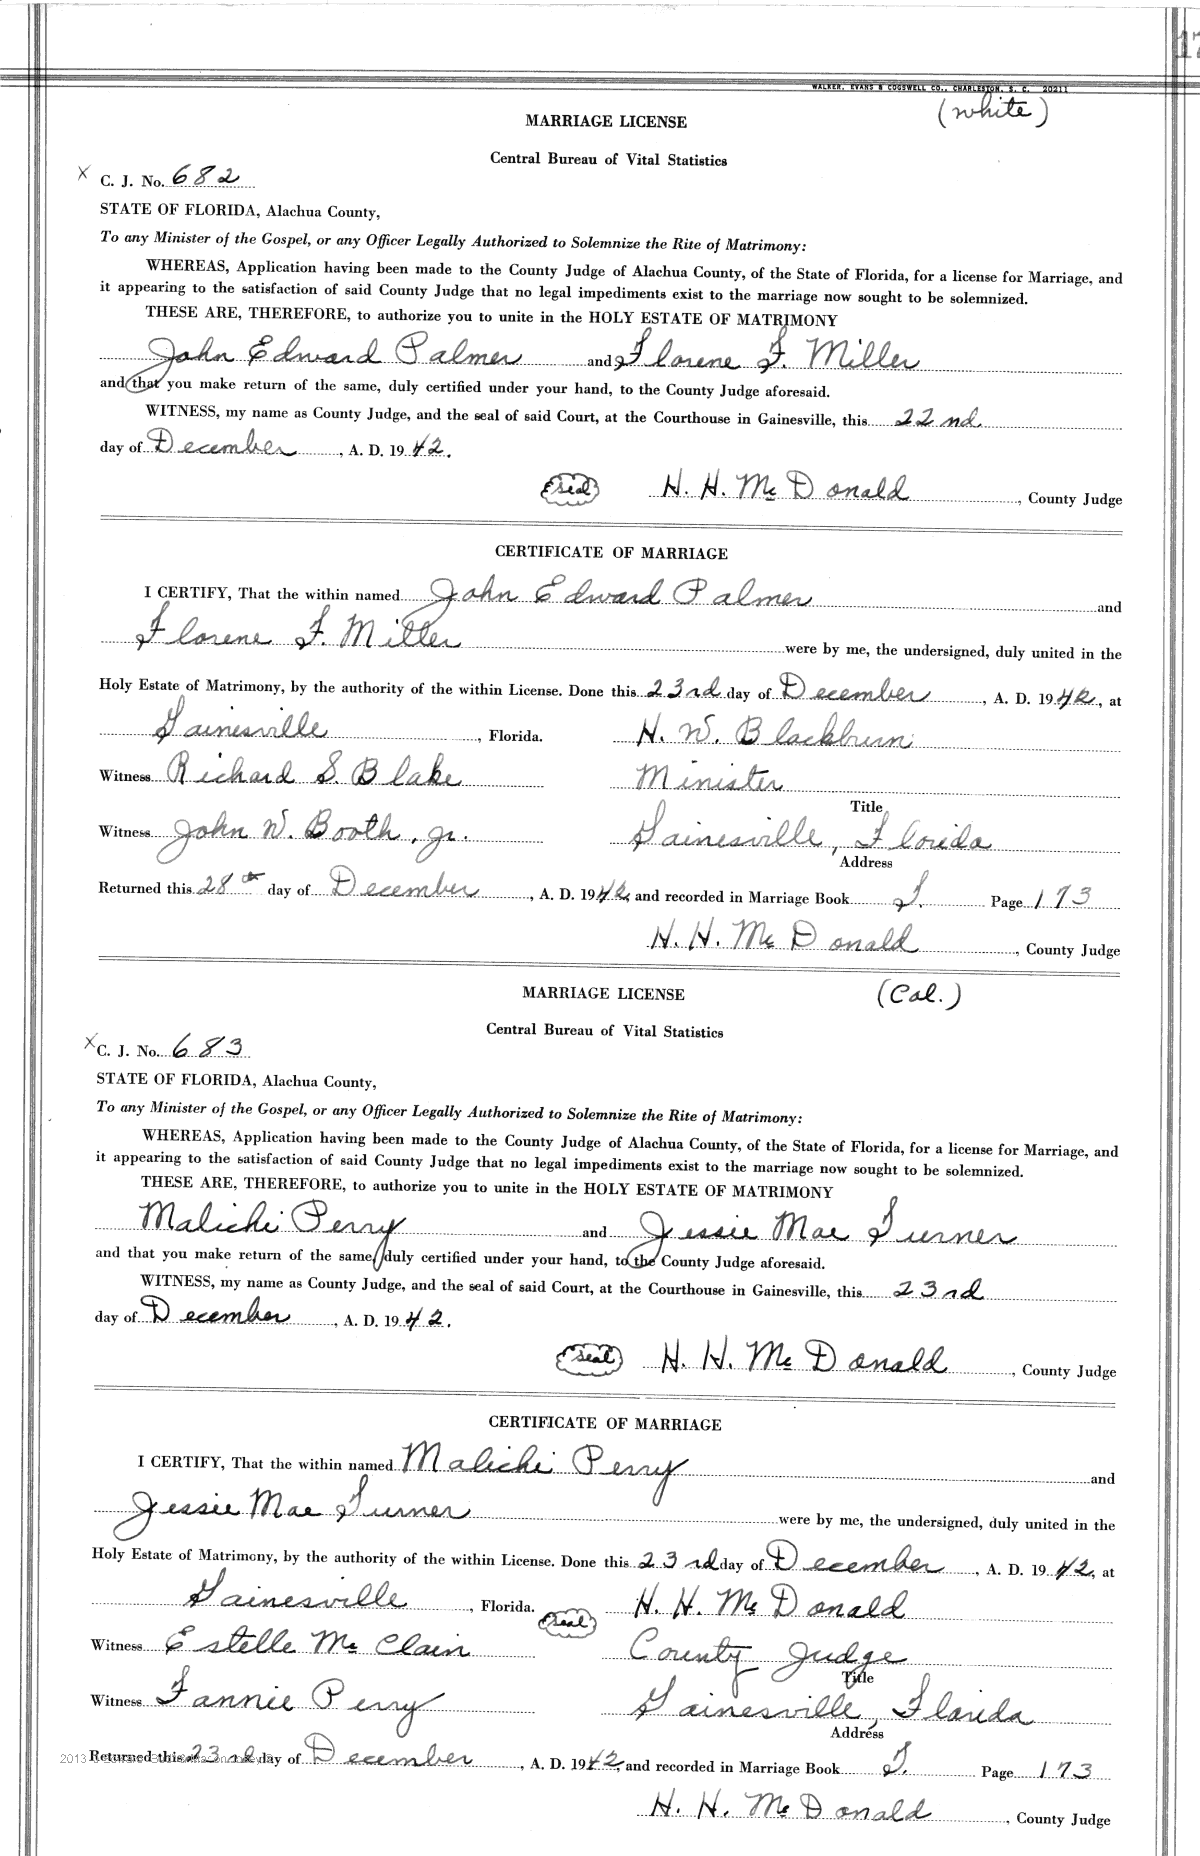 17
WALKER, EVANS & COGSWELL CO., CHARLESTON, S. C. 20211
(white)
MARRIAGE LICENSE
Central Bureau of Vital Statistics
X C. J. No. 682
STATE OF FLORIDA, Alachua County,
To any Minister of the Gospel, or any Officer Legally Authorized to Solemnize the Rite of Matrimony:
WHEREAS, Application having been made to the County Judge of Alachua County, of the State of Florida, for a license for Marriage, and
it appearing to the satisfaction of said County Judge that no legal impediments exist to the marriage now sought to be solemnized.
THESE ARE, THEREFORE, to authorize you to unite in the HOLY ESTATE OF MATRIMONY
John Edward Palmer and Florene F. Miller
and that you make return of the same, duly certified under your hand, to the County Judge aforesaid.
WITNESS, my name as County Judge, and the seal of said Court, at the Courthouse in Gainesville, this 22nd
day of December, A. D. 1942.
Seal H. H. McDonald, County Judge
CERTIFICATE OF MARRIAGE
I CERTIFY, That the within named John Edward Palmer and
Florene F. Miller were by me, the undersigned, duly united in the
Holy Estate of Matrimony, by the authority of the within License. Done this 23rd day of December, A. D. 1942, at
Gainesville, Florida. H. W. Blackburn
Witness Richard S. Blake Minister
Title
Witness John W. Booth, Jr. Gainesville, Florida
Address
Returned this 28th day of December, A. D. 1942, and recorded in Marriage Book Page 173
H. H. McDonald, County Judge
MARRIAGE LICENSE (Col.)
Central Bureau of Vital Statistics
X C. J. No. 683
STATE OF FLORIDA, Alachua County,
To any Minister of the Gospel, or any Officer Legally Authorized to Solemnize the Rite of Matrimony:
WHEREAS, Application having been made to the County Judge of Alachua County, of the State of Florida, for a license for Marriage, and
it appearing to the satisfaction of said County Judge that no legal impediments exist to the marriage now sought to be solemnized.
THESE ARE, THEREFORE, to authorize you to unite in the HOLY ESTATE OF MATRIMONY
Malichi Perry and Jessie Mae Turner
and that you make return of the same, duly certified under your hand, to the County Judge aforesaid.
WITNESS, my name as County Judge, and the seal of said Court, at the Courthouse in Gainesville, this 23rd
day of December, A. D. 1942.
Seal H. H. McDonald, County Judge
CERTIFICATE OF MARRIAGE
I CERTIFY, That the within named Malichi Perry and
Jessie Mae Turner were by me, the undersigned, duly united in the
Holy Estate of Matrimony, by the authority of the within License. Done this 23rd day of December, A. D. 1942, at
Gainesville, Florida. Seal H. H. McDonald
Witness Estelle McClain County Judge
Title
Witness Fannie Perry Gainesville, Florida
Address
Returned this 23rd day of December, A. D. 1942, and recorded in Marriage Book Page 173
2013
H. H. McDonald, County Judge